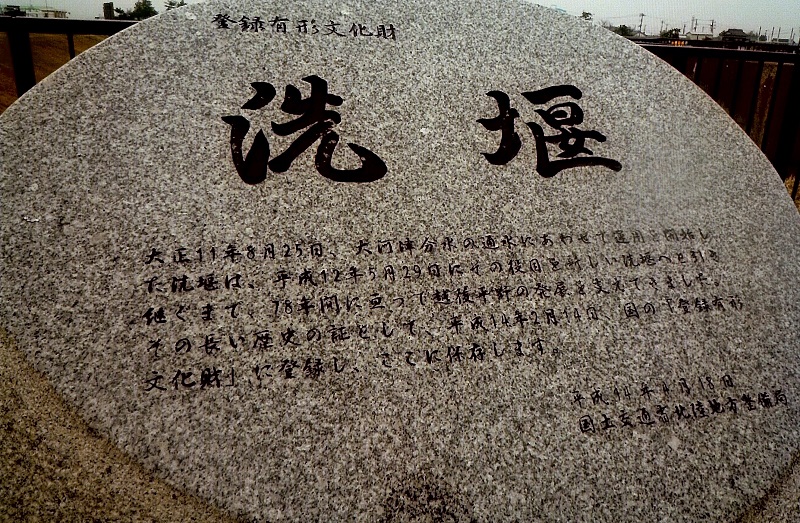 登録有形文化財
洗堰
大正11年8月25日、大河津分水の通水にあわせて運用を開始し
た洗堰は、平成12年5月29日にその役目を新しい洗堰へと引き
継ぐまで、78年間に亘って越後平野の発展を支えてきました。
その長い歴史の証として、平成14年2月14日、国の「登録有形
文化財」に登録し、ここに保存します。
平成14年4月18日
国土交通省北陸地方整備局